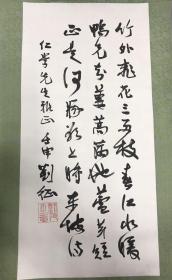 竹外桃花三两枝春江水暖
鸭先知蒌蒿满地芦芽短
正是河豚欲上时东坡诗
先生雅正壬申劉征